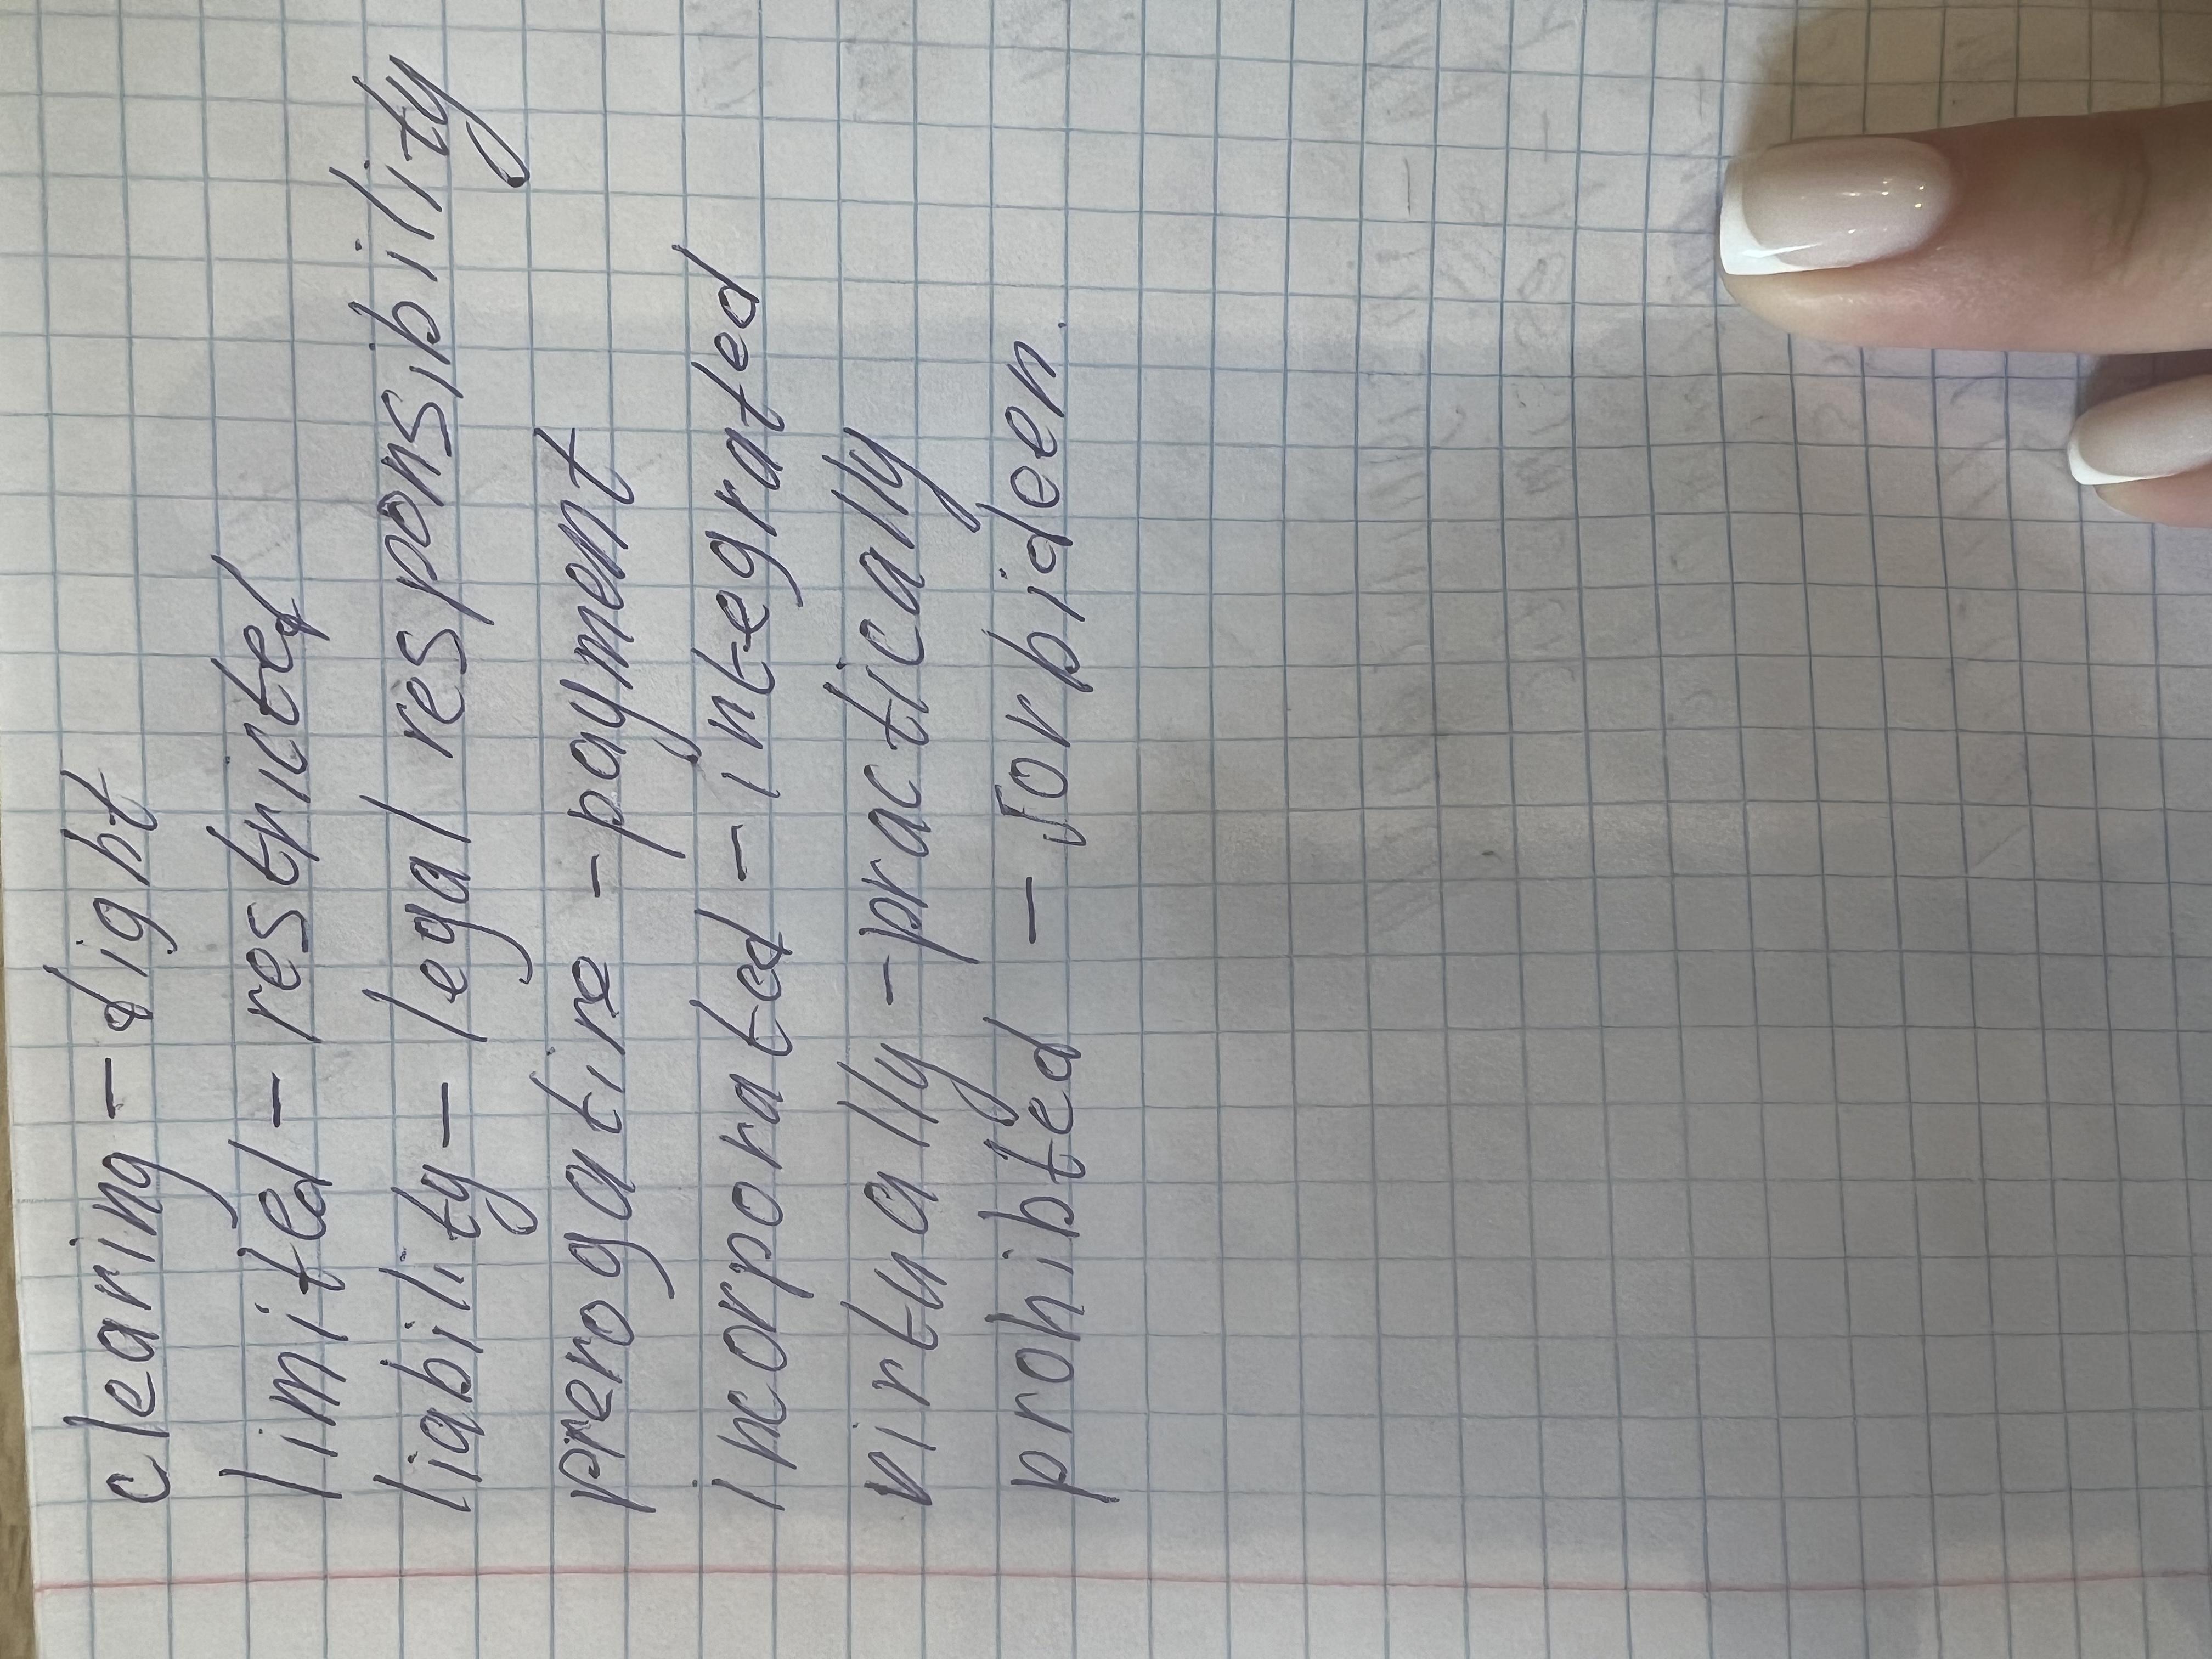 clearing - dight
limited - restricted
liability - legal responsibility
prerogative - payment
incorporated - integrated
virtually - practically
prohibted - forbiden.